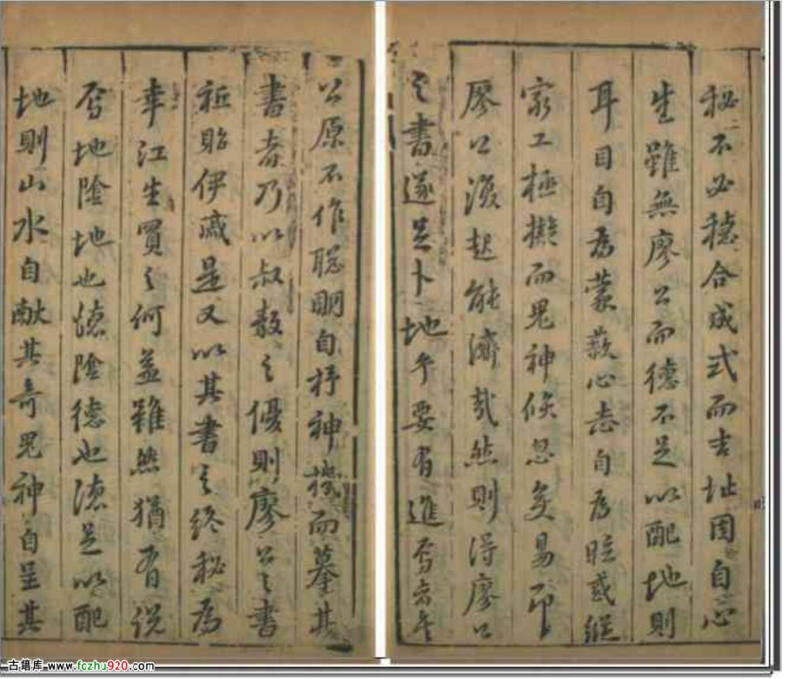 秘不必穩合成式而吉址因自心
生雖無廖公而德不足以配地則
耳目自為蒙蔽心志自為眩惑縱
工極擬而鬼神倐忽变易即
廖公復起能濟哉然則得廖公
之書遂足卜地乎要有進焉者
公原不作聰明自抒神機而摹其
書者乃以叔敖之優則廖公之書
祗貽伊戚是又以其書之終秘為
幸江生買之何益雖然猶有說
焉地陰地也德陰德也德足以配
地則山水自献其奇鬼神自呈其
古籍库 www.fczhu920.com